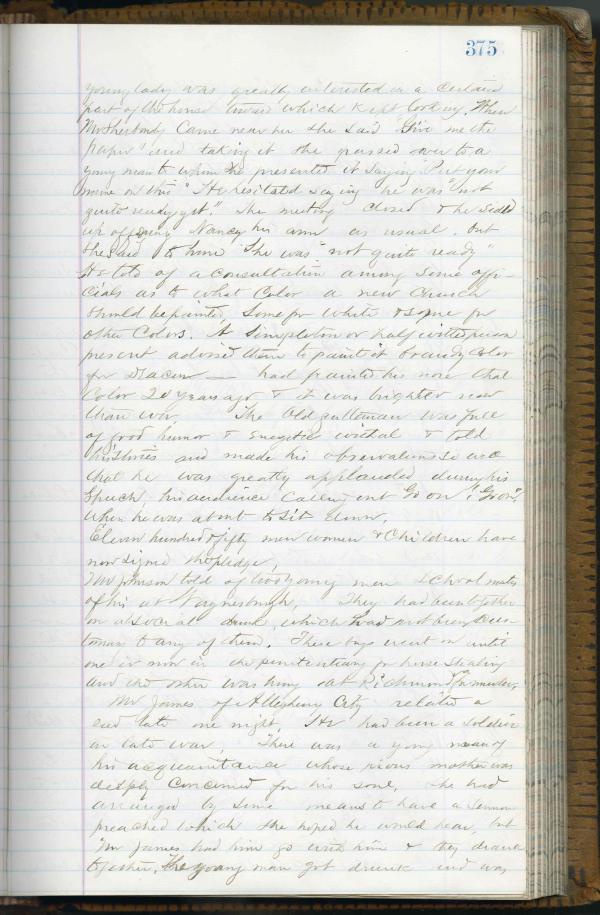 375
young lady was greatly interested in a certain
part of the house toward which kept looking. When
Mr Sherbondy came near her she said "Give me the
paper" and taking it she passed over to a
young man to whom she presented it saying "Put your
name on this" "He hesitated saying "he was "not
quite ready yet." The meeting closed & he sidled
up offering Nancy his arm as usual, but
she said to him "She was "not quite ready"
He told of a consultation among some offi-
cials as to what color a new church
should be painted, some for white & some for
other colors. A simpleton or half witted person
present advised them to paint it brandy color
for Deacon — had painted his nose that
color 20 years ago & it was brighter now
than ever The old gentleman was full
of good humor & energetic withal & told
his stories and made his observations so well
that he was greatly applauded during his
speech, his audience calling out Go on, "Go on",
when he was about to sit down,
Eleven hundred & fifty men women & children have
now signed the pledge,
Mr Johnson told of two young men school mates
of his at Waynesburgh, They had been together
in a social drink, which had not been cus
tomary to any of them. These boys went on until
one is now in the penitentiary for horse stealing
and the other was hung at Richmond for murder,
Mr James of Allegheny City related a
sad tale one night, He had been a soldier
in late war, There was a young man of
his acquaintance whose pious mother was
deeply concerned for his soul, She had
arranged by some means to have a sermon
preached which she hoped he would hear, but
Mr James had him go with him & they drank
together, The young man got drunk and was